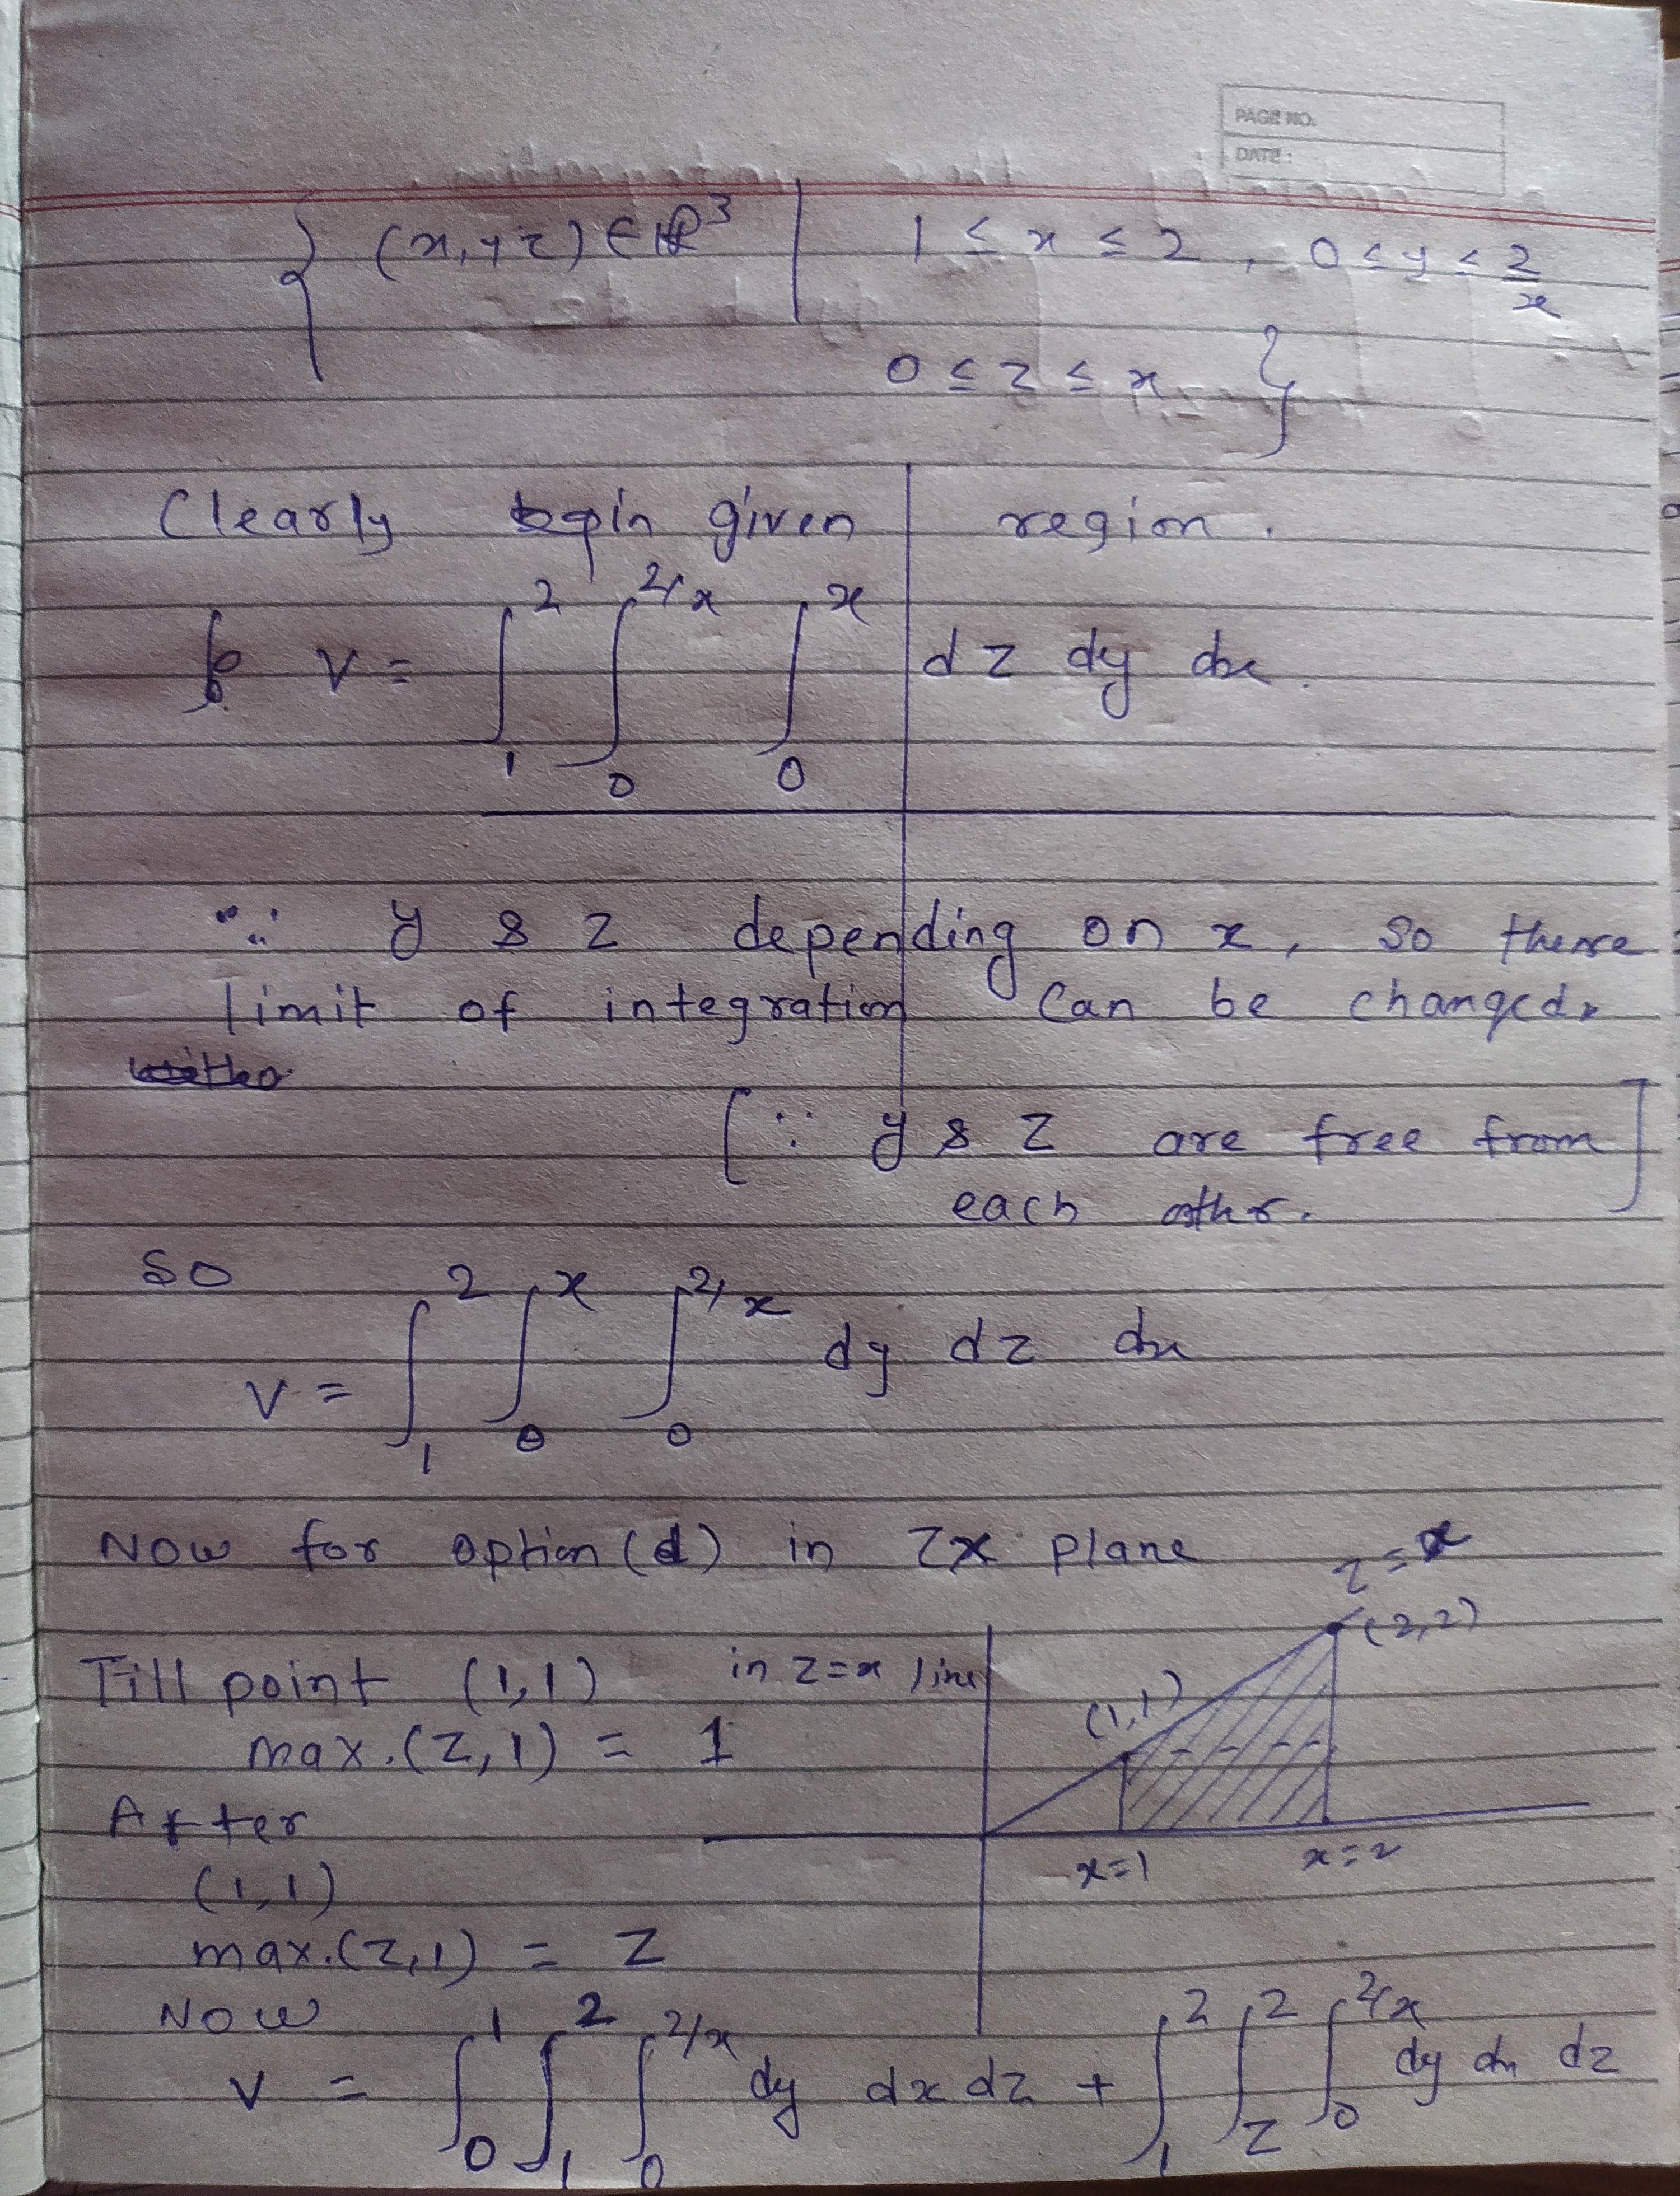 PAGE NO.
DATE :
{ (x, y z) ∈ ℝ³ | 1 ≤ x ≤ 2 , 0 ≤ y ≤ 2/x
0 ≤ z ≤ x }
Clearly in given region.
V = ∫₁² ∫₀^{2/x} ∫₀^x dz dy dx.
∵ y & z depending on x, so there
limit of integration can be changed.
[∵ y & z are free from
each other.]
so
V = ∫₁² ∫₀^x ∫₀^{2/x} dy dz dx
Now for option (d) in zx plane
z = x
(2,2)
Till point (1,1) in z=x line
(1,1)
max.(z,1) = 1
After
x=1 x=2
(1,1)
max.(z,1) = z
Now
V = ∫₀¹ ∫₁² ∫₀^{2/x} dy dx dz + ∫₁² ∫_z² ∫₀^{2/x} dy dx dz